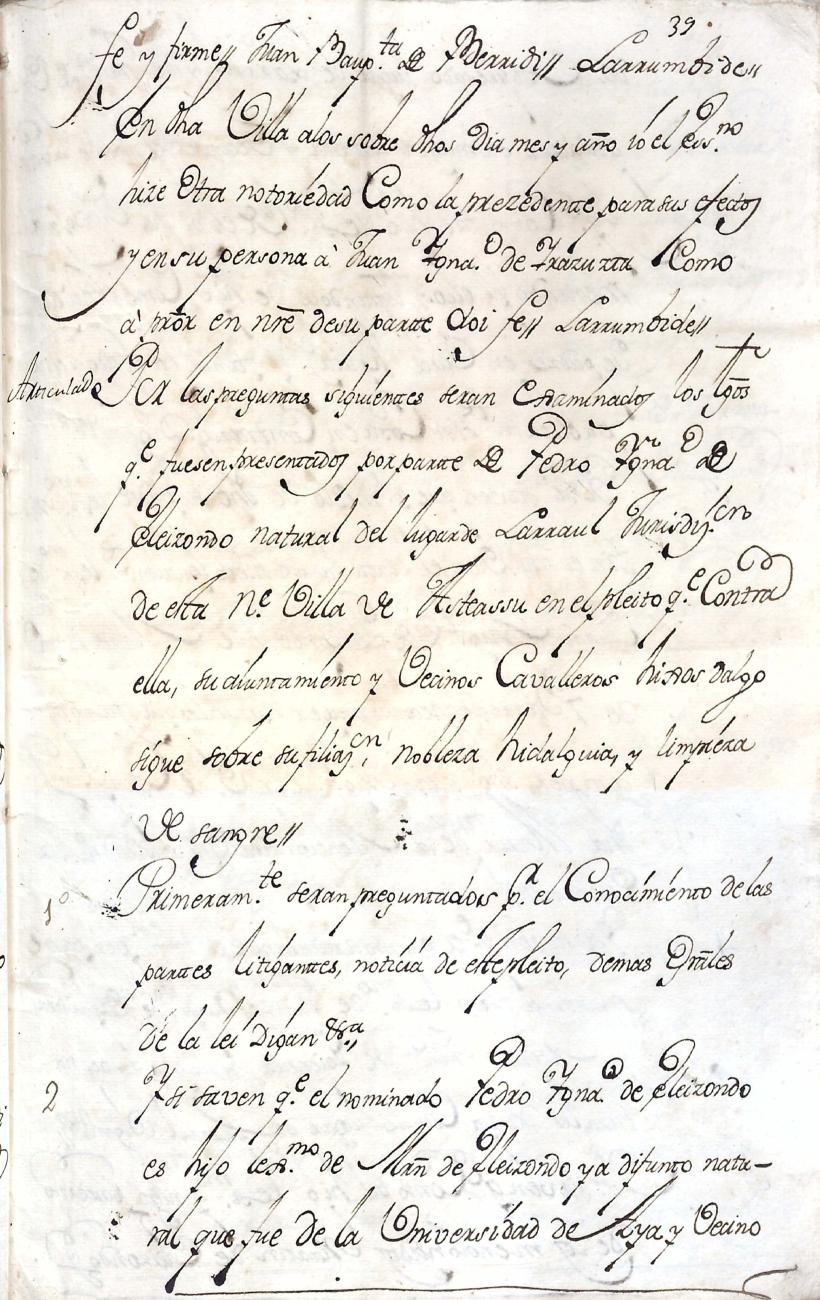 39
fe y firme// Juan Baup.ta de Berridi// Larrumbide//
En dha Villa alos sobre dhos dia mes y año io el Ess.no
hize Otra notoriedad Como la prezedente para sus efectos
y en su persona à Juan Ygna.o de Yrazuzta Como
à prõr en nrẽ de su parte doi fe// Larrumbide//
Articulado
Por las preguntas siguientes seran examinados los tg̃os
q.e fuesen presentados por parte de Pedro Ygna.o de
Eleizondo natural del lugar de Larraul Jurisdiz.cn
de esta N.e Villa de Asteassu en el pleito q.e Contra
ella, su aiuntamiento y Vecinos Cavalleros hixos dalgo
sigue sobre su filiaz.cn, nobleza hidalguia, y limpieza
de sangre//
1o
Primeram.te seran preguntados p.r el Conocimiento de las
partes litigantes, noticia de este pleito, demas Gräles
de la lei Digan &.a
2
Y si saven q.e el nominado Pedro Ygna.o de Eleizondo
es hijo lex.mo de Mrñ de Eleizondo ya difunto natu-
ral que fue de la Universidad de Aya y Vecino